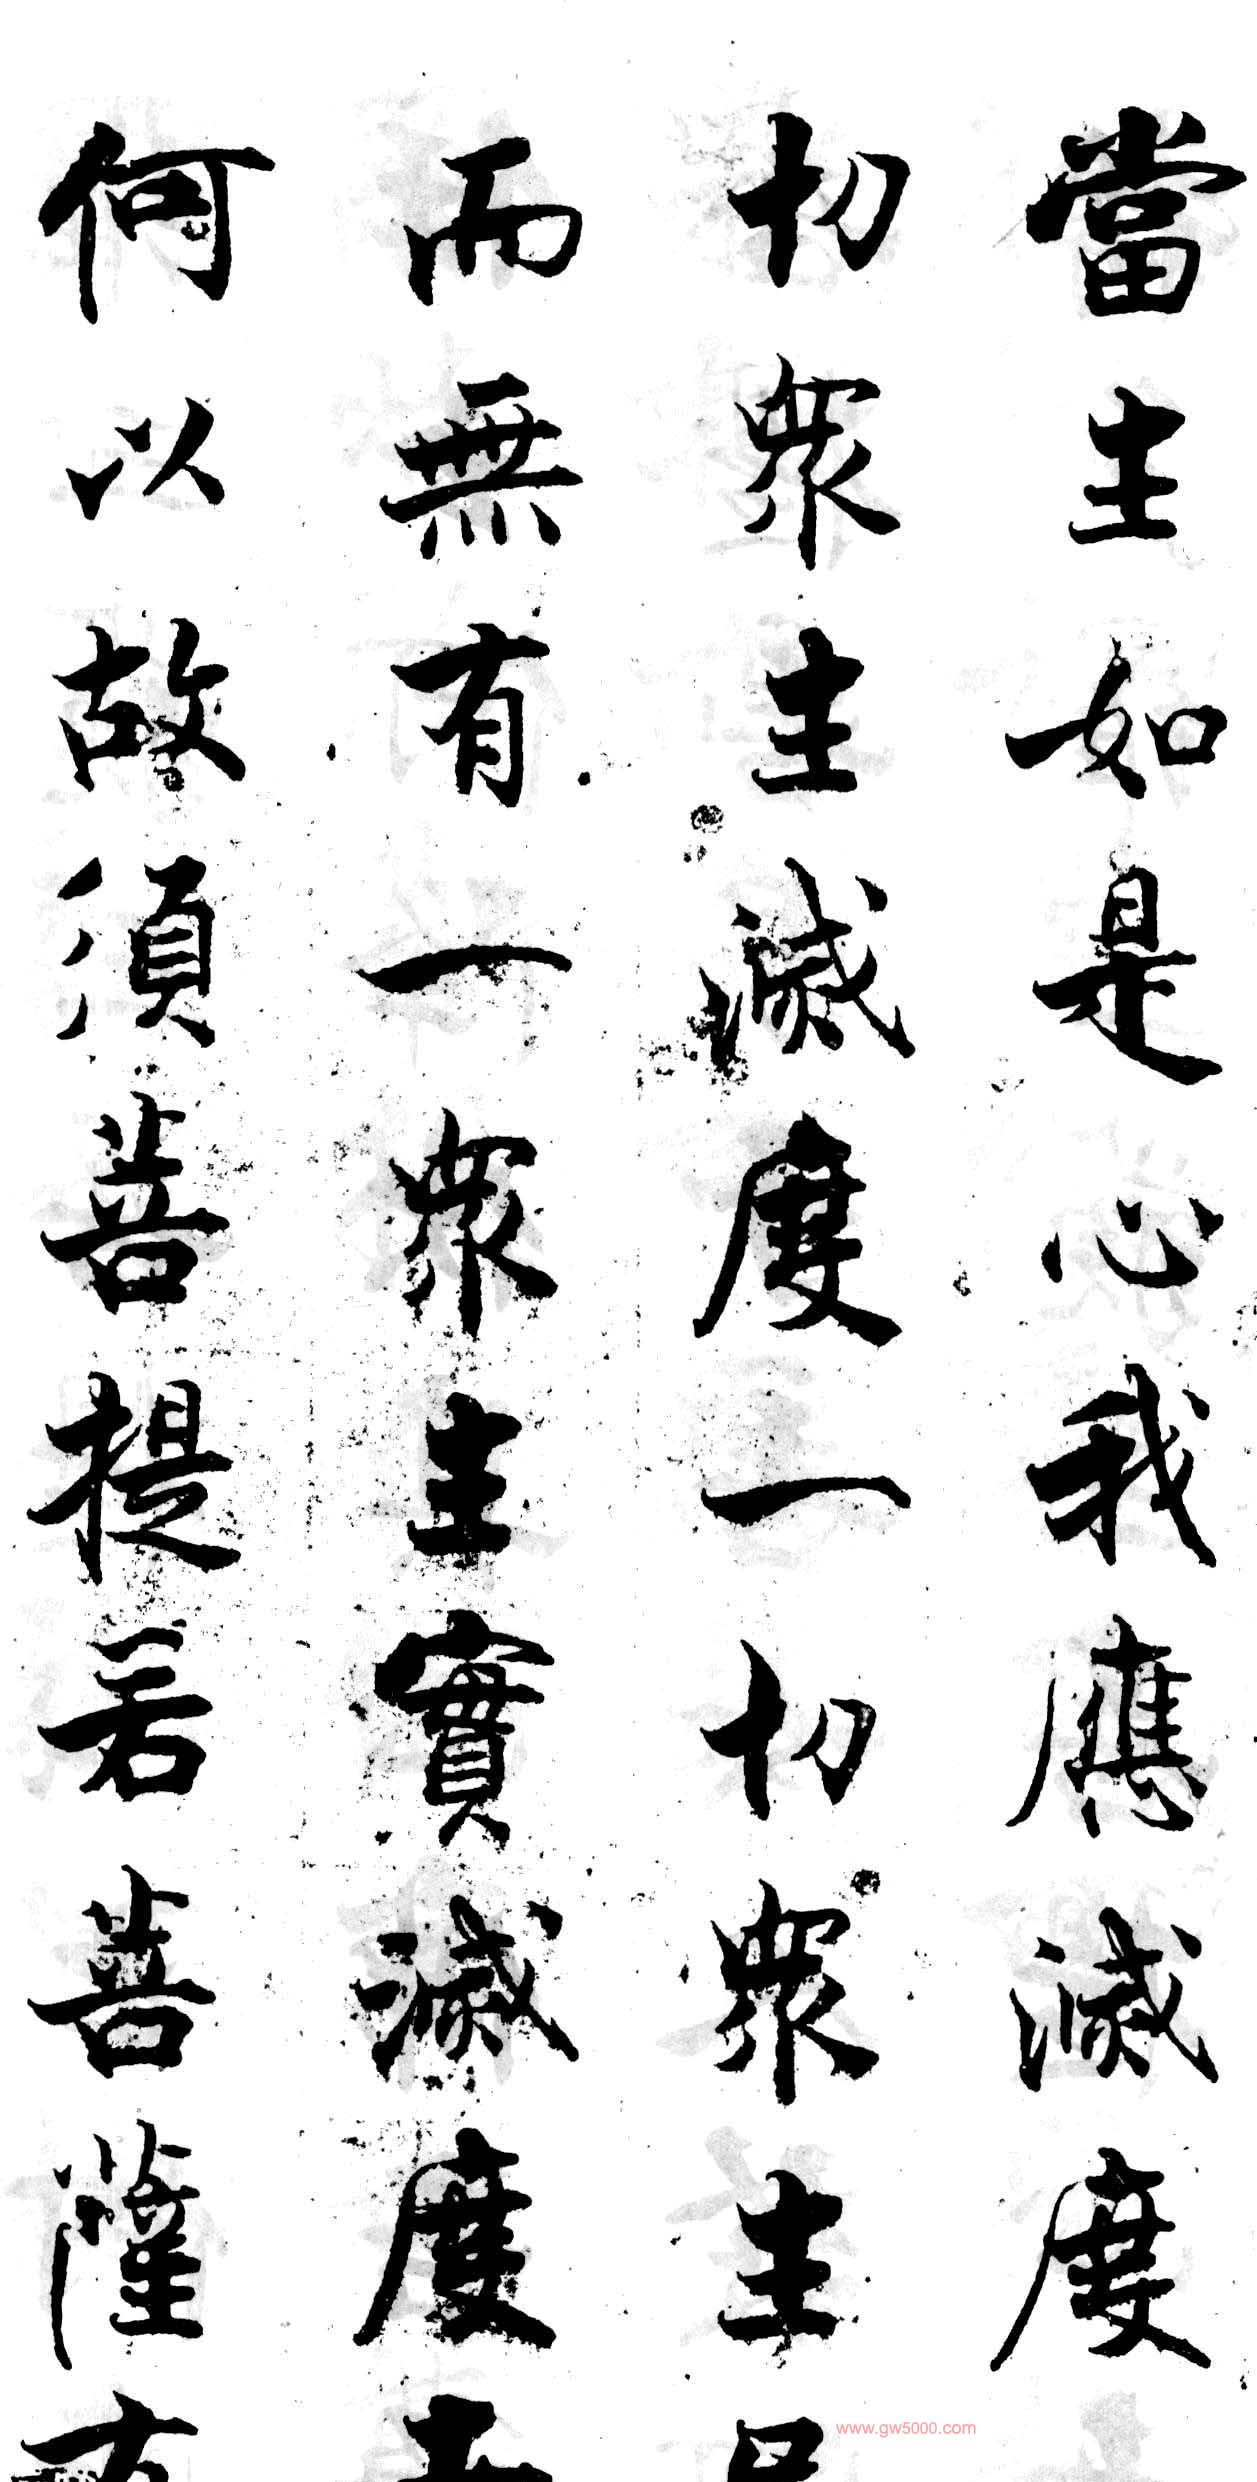 當生如是心我應滅度
切眾生滅度一切眾生
而無有一眾生實滅度
何以故須菩提若菩薩
www.gw5000.com